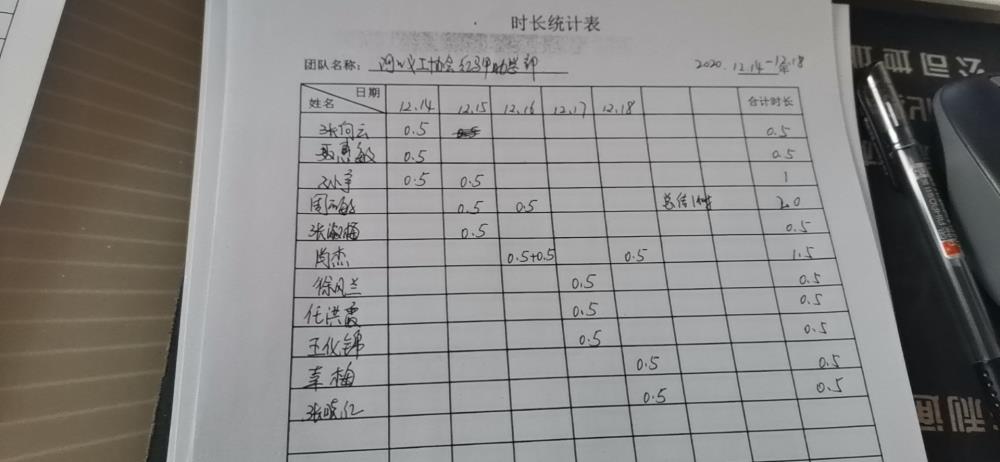 时长统计表
团队名称: 义工协会红马甲
2020.12.14-12.18
姓名 日期 12.14 12.15 12.16 12.17 12.18 合计时长
张向云 0.5 0.5
聂惠敏 0.5 0.5
0.5 0.5 1
周 敏 0.5 0.5 总结1小时 2.0
张淑梅 0.5 0.5
尚杰 0.5+0.5 0.5 1.5
徐风兰 0.5 0.5
任洪霞 0.5 0.5
王化锦 0.5 0.5
李梅 0.5 0.5
张晓红 0.5 0.5
公司地址
利通